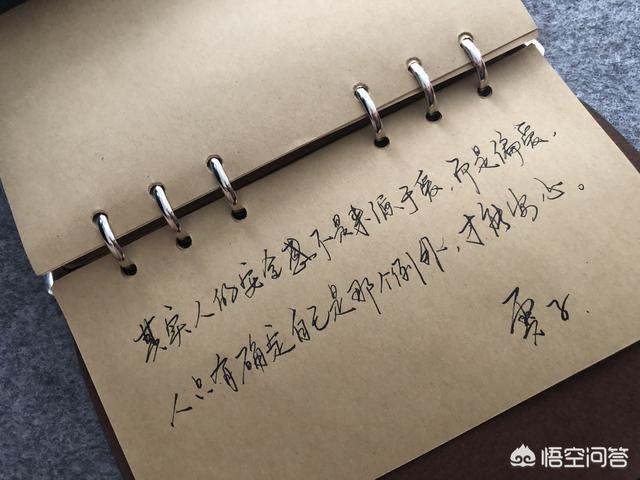 其实人的安全感不是来源于爱，而是偏爱，
人只有确定自己是那个例外，才能安心。
悟空问答